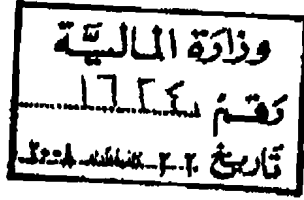 وزارة الماليّة
رقم ١٦٢٤
تاريخ